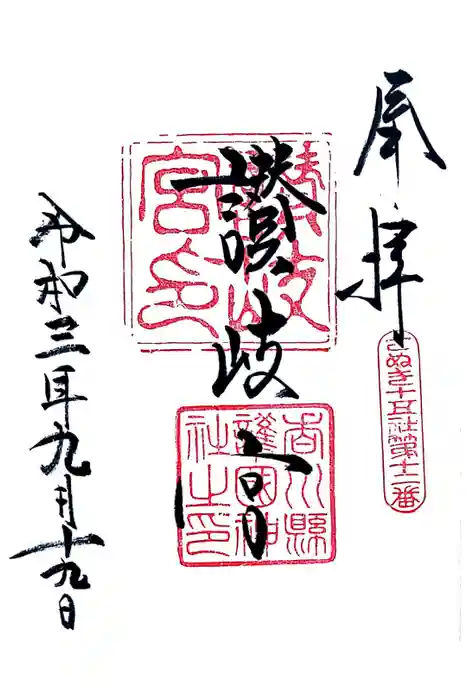 奉拝
さぬき十五社第十二番
讃岐宮
讃岐宮印
香川縣護國神社之印
令和三年九月十九日